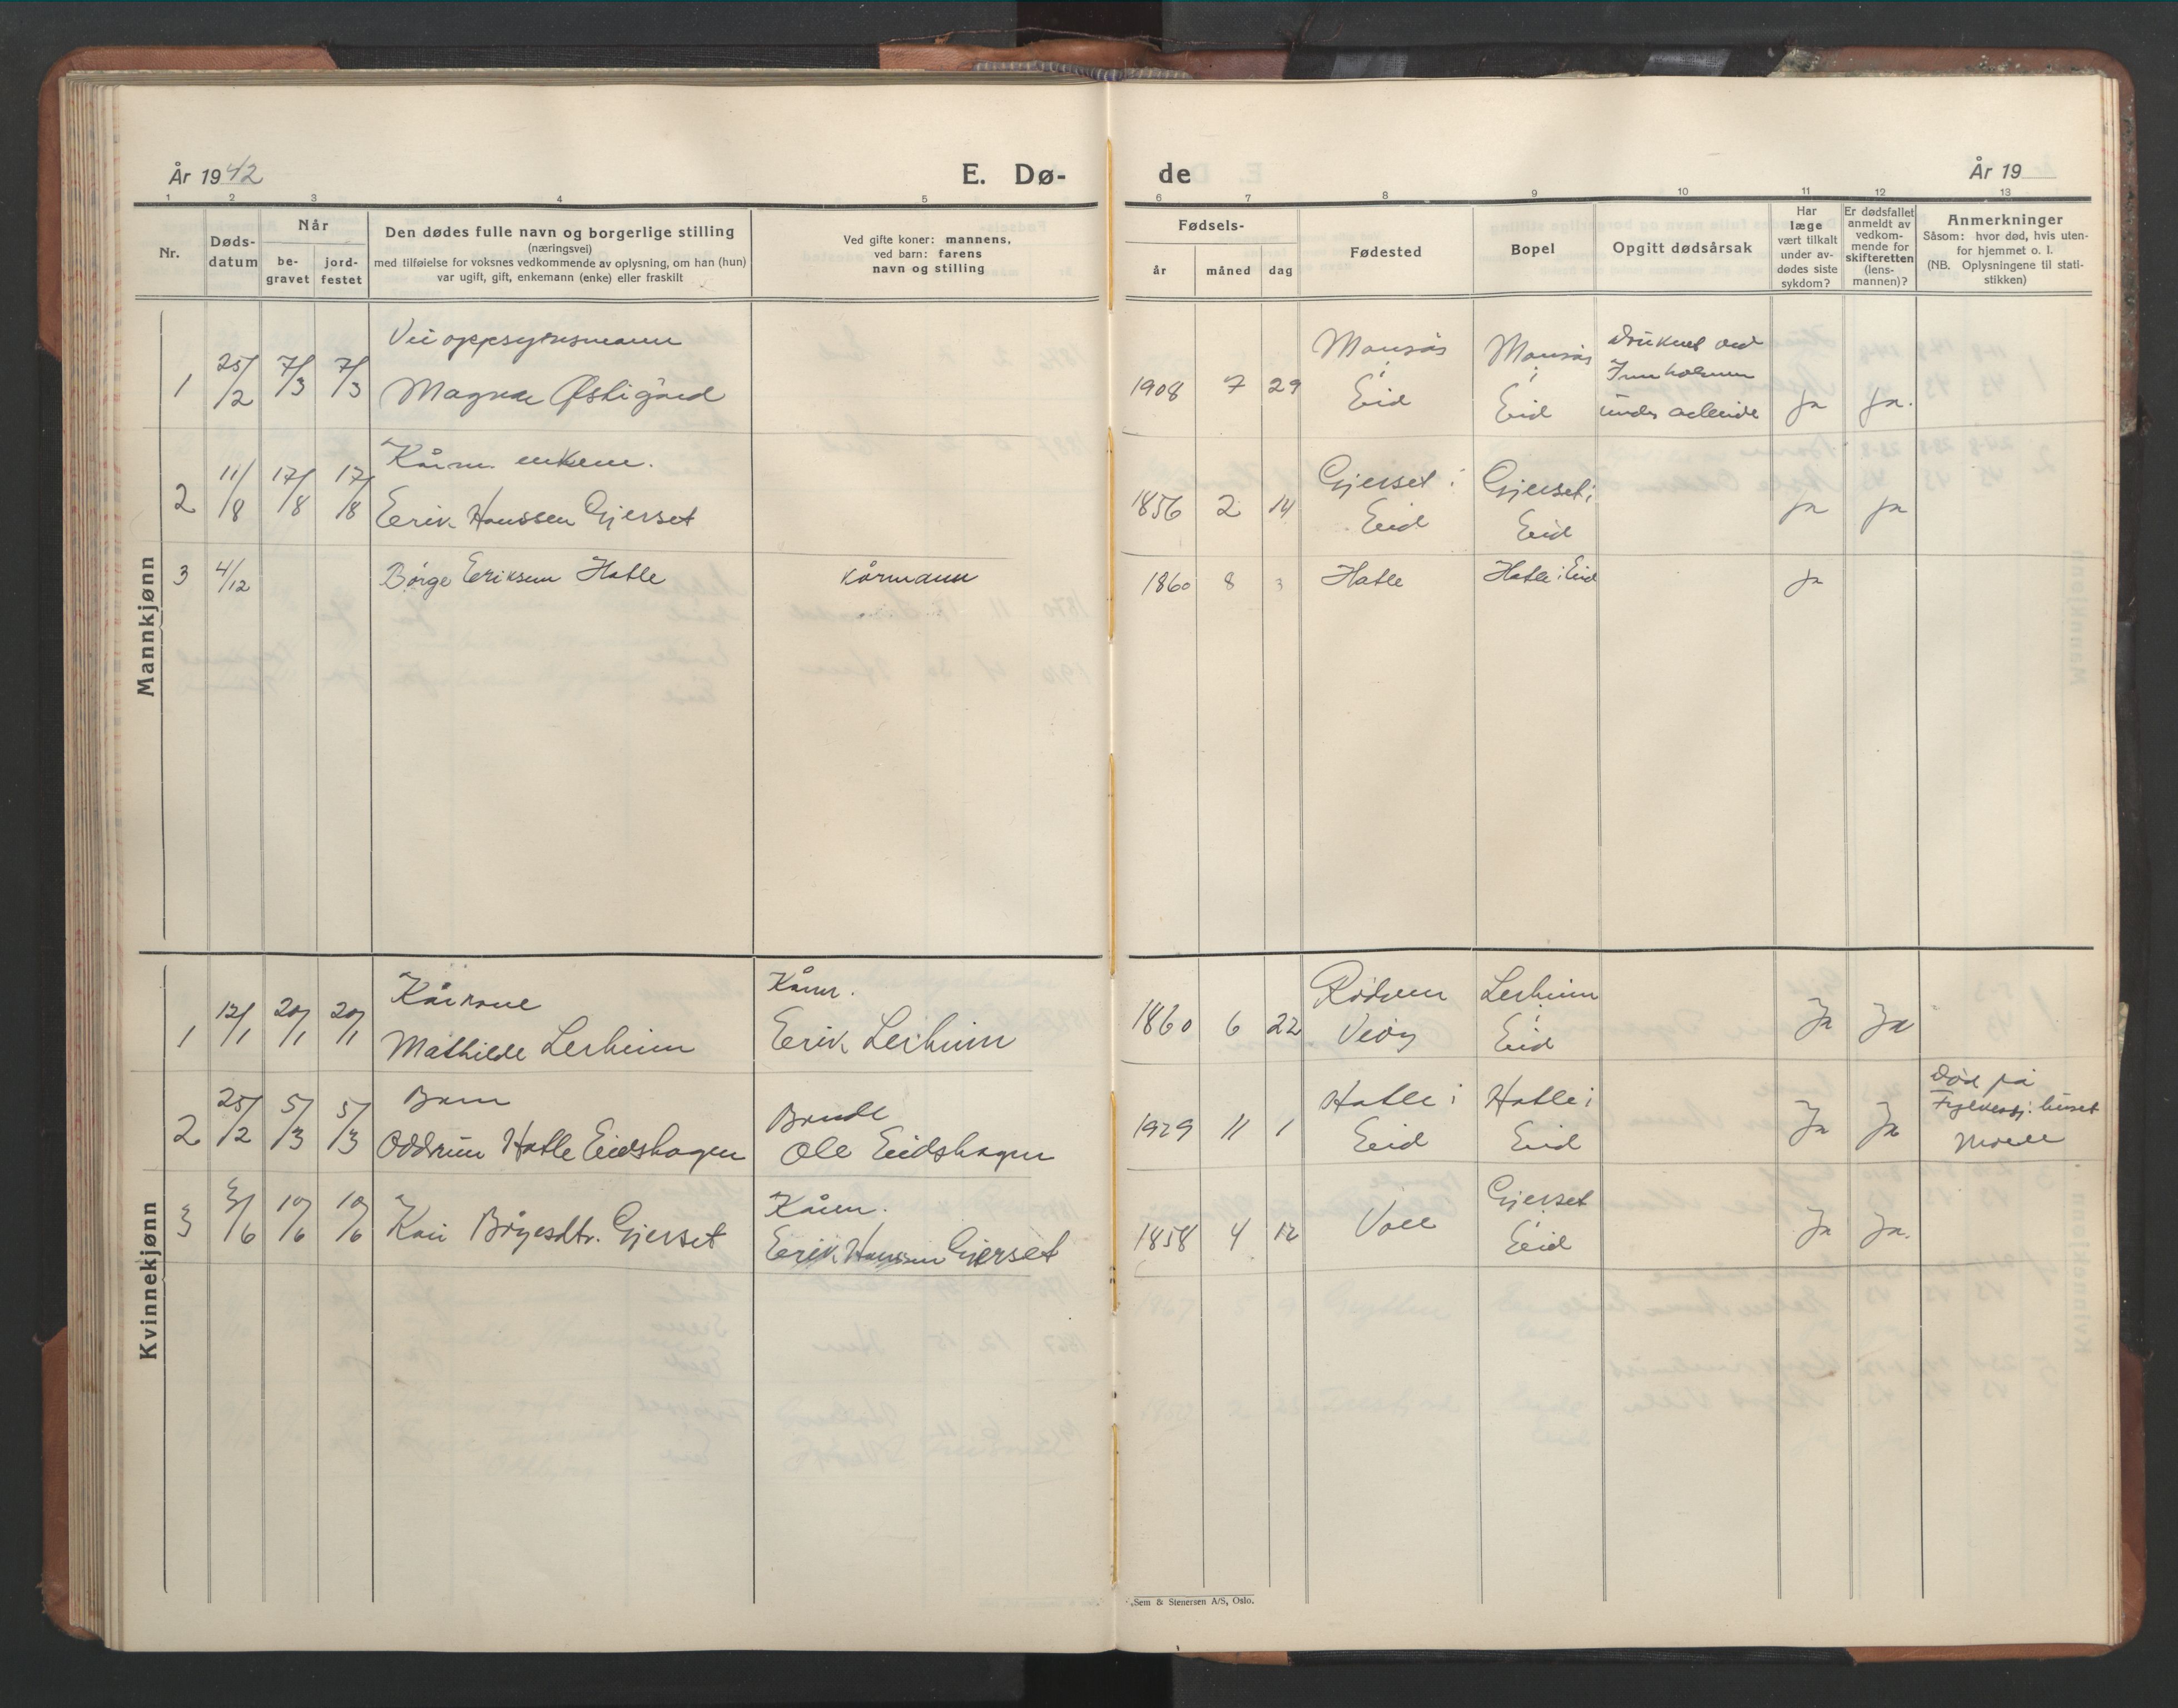 År 1942
E. Dø-
de
År 19
1 2 3 4 5 6 7 8 9 10 11 12 13
Nr.
Døds-
datum
Når
be-
gravet
jord-
festet
Den dødes fulle navn og borgerlige stilling
(næringsvei)
med tilføielse for voksnes vedkommende av oplysning, om han (hun)
var ugift, gift, enkemann (enke) eller fraskilt
Ved gifte koner: mannens,
ved barn: farens
navn og stilling
Fødsels-
år måned dag
Fødested
Bopel
Opgitt dødsårsak
Har
læge
vært tilkalt
under av-
dødes siste
sykdom?
Er dødsfallet
anmeldt av
vedkom-
mende for
skifteretten
(lens-
mannen)?
Anmerkninger
Såsom: hvor død, hvis uten-
for hjemmet o. l.
(NB. Oplysningene til stati-
stikken)
Mannkjønn
Vei oppsynsmann
1 25/2 7/3 7/3 Magne Østigård
1908 7 29
Monsås
i
Eid
Monsås
i
Eid
Druknet ved
under arbeide
ja ja.
Kårm. enkem.
2 11/8 17/8 17/8 Erik Hanssen Gjerset
1856 2 14
Gjerset i
Eid
Gjerset i
Eid
ja ja
3 4/12 Børge Eriksen Hatle kårmann 1860 8 3 Hatle Hatle i Eid ja
Kvinnekjønn
Kårkone
1 12/1 20/1 20/1 Mathilde Lerheim
Kårm.
Erik Lerheim
1860 6 22
Rødven
Veøy
Lerheim
i
Eid
Ja Ja
Barn
2 25/2 5/3 5/3 Oddrun Hatle Eidshagen
Bonde
Ole Eidshagen
1929 11 1
Hatle i
Eid
Hatle i
Eid
Ja Ja
Død på
Fylkessj.huset
Molde
3 3/6 10/6 10/6 Kari Børgesdtr. Gjerset
Kårm.
Erik Hanssen Gjerset
1858 4 12 Voll
Gjerset
i
Eid
Ja Ja.
Sem & Stenersen A/S, Oslo.